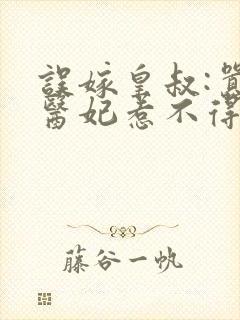 誤嫁皇叔:囂
醫妃惹不得
藤谷一帆